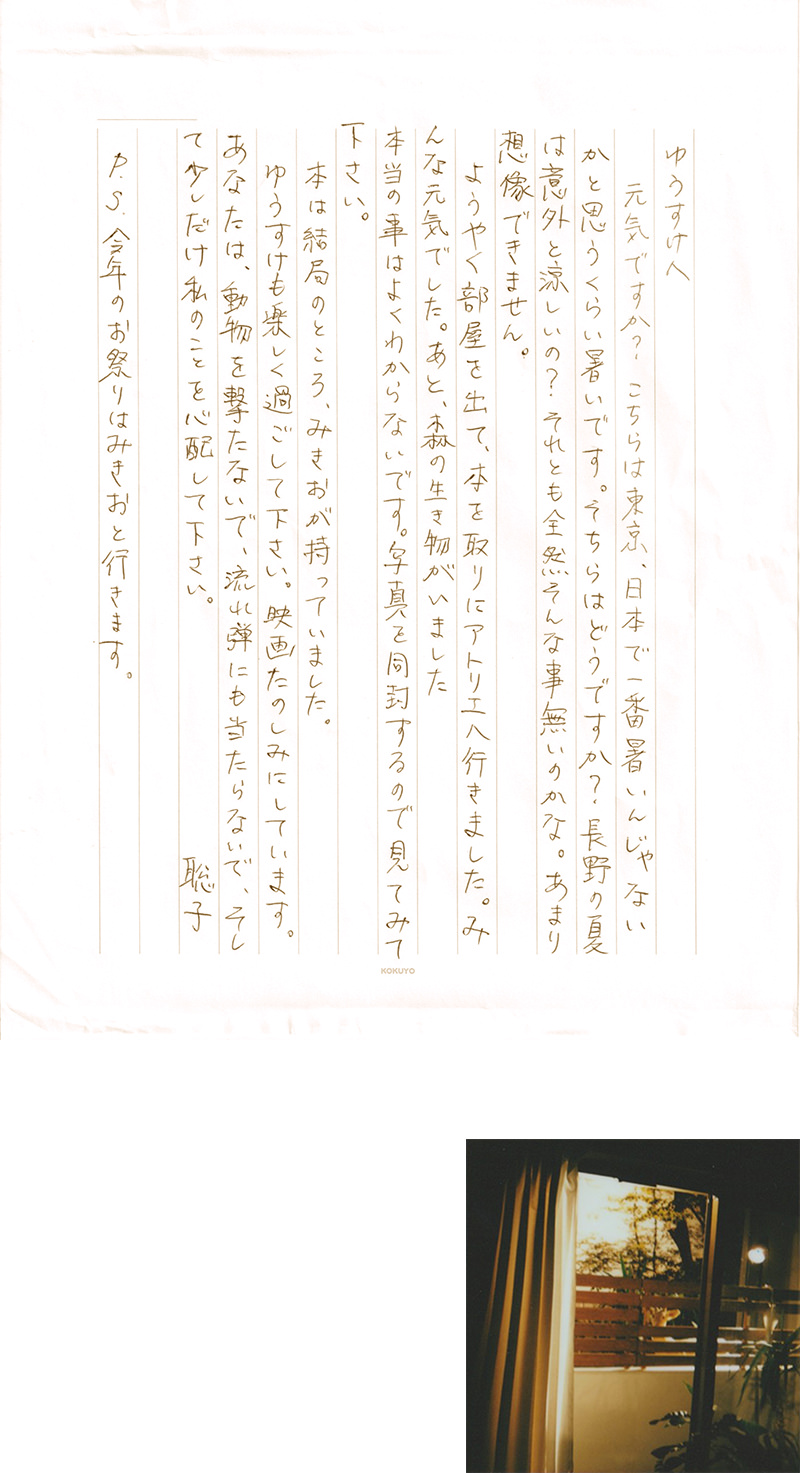 ゆうすけへ
元気ですか？こちらは東京、日本で一番暑いんじゃない
かと思うくらい暑いです。そちらはどうですか？長野の夏
は意外と涼しいの？それとも全然そんな事無いのかな。あまり
想像できません。
ようやく部屋を出て、本を取りにアトリエへ行きました。み
んな元気でした。あと、森の生き物がいました
本当の事はよくわからないです。写真を同封するので見てみて
下さい。
本は結局のところ、みきおが持っていました。
ゆうすけも楽しく過ごして下さい。映画たのしみにしています。
あなたは、動物を撃たないで、流れ弾にも当たらないで、そし
て少しだけ私のことを心配して下さい。
聡子
P.S. 今年のお祭りはみきおと行きます。
KOKUYO